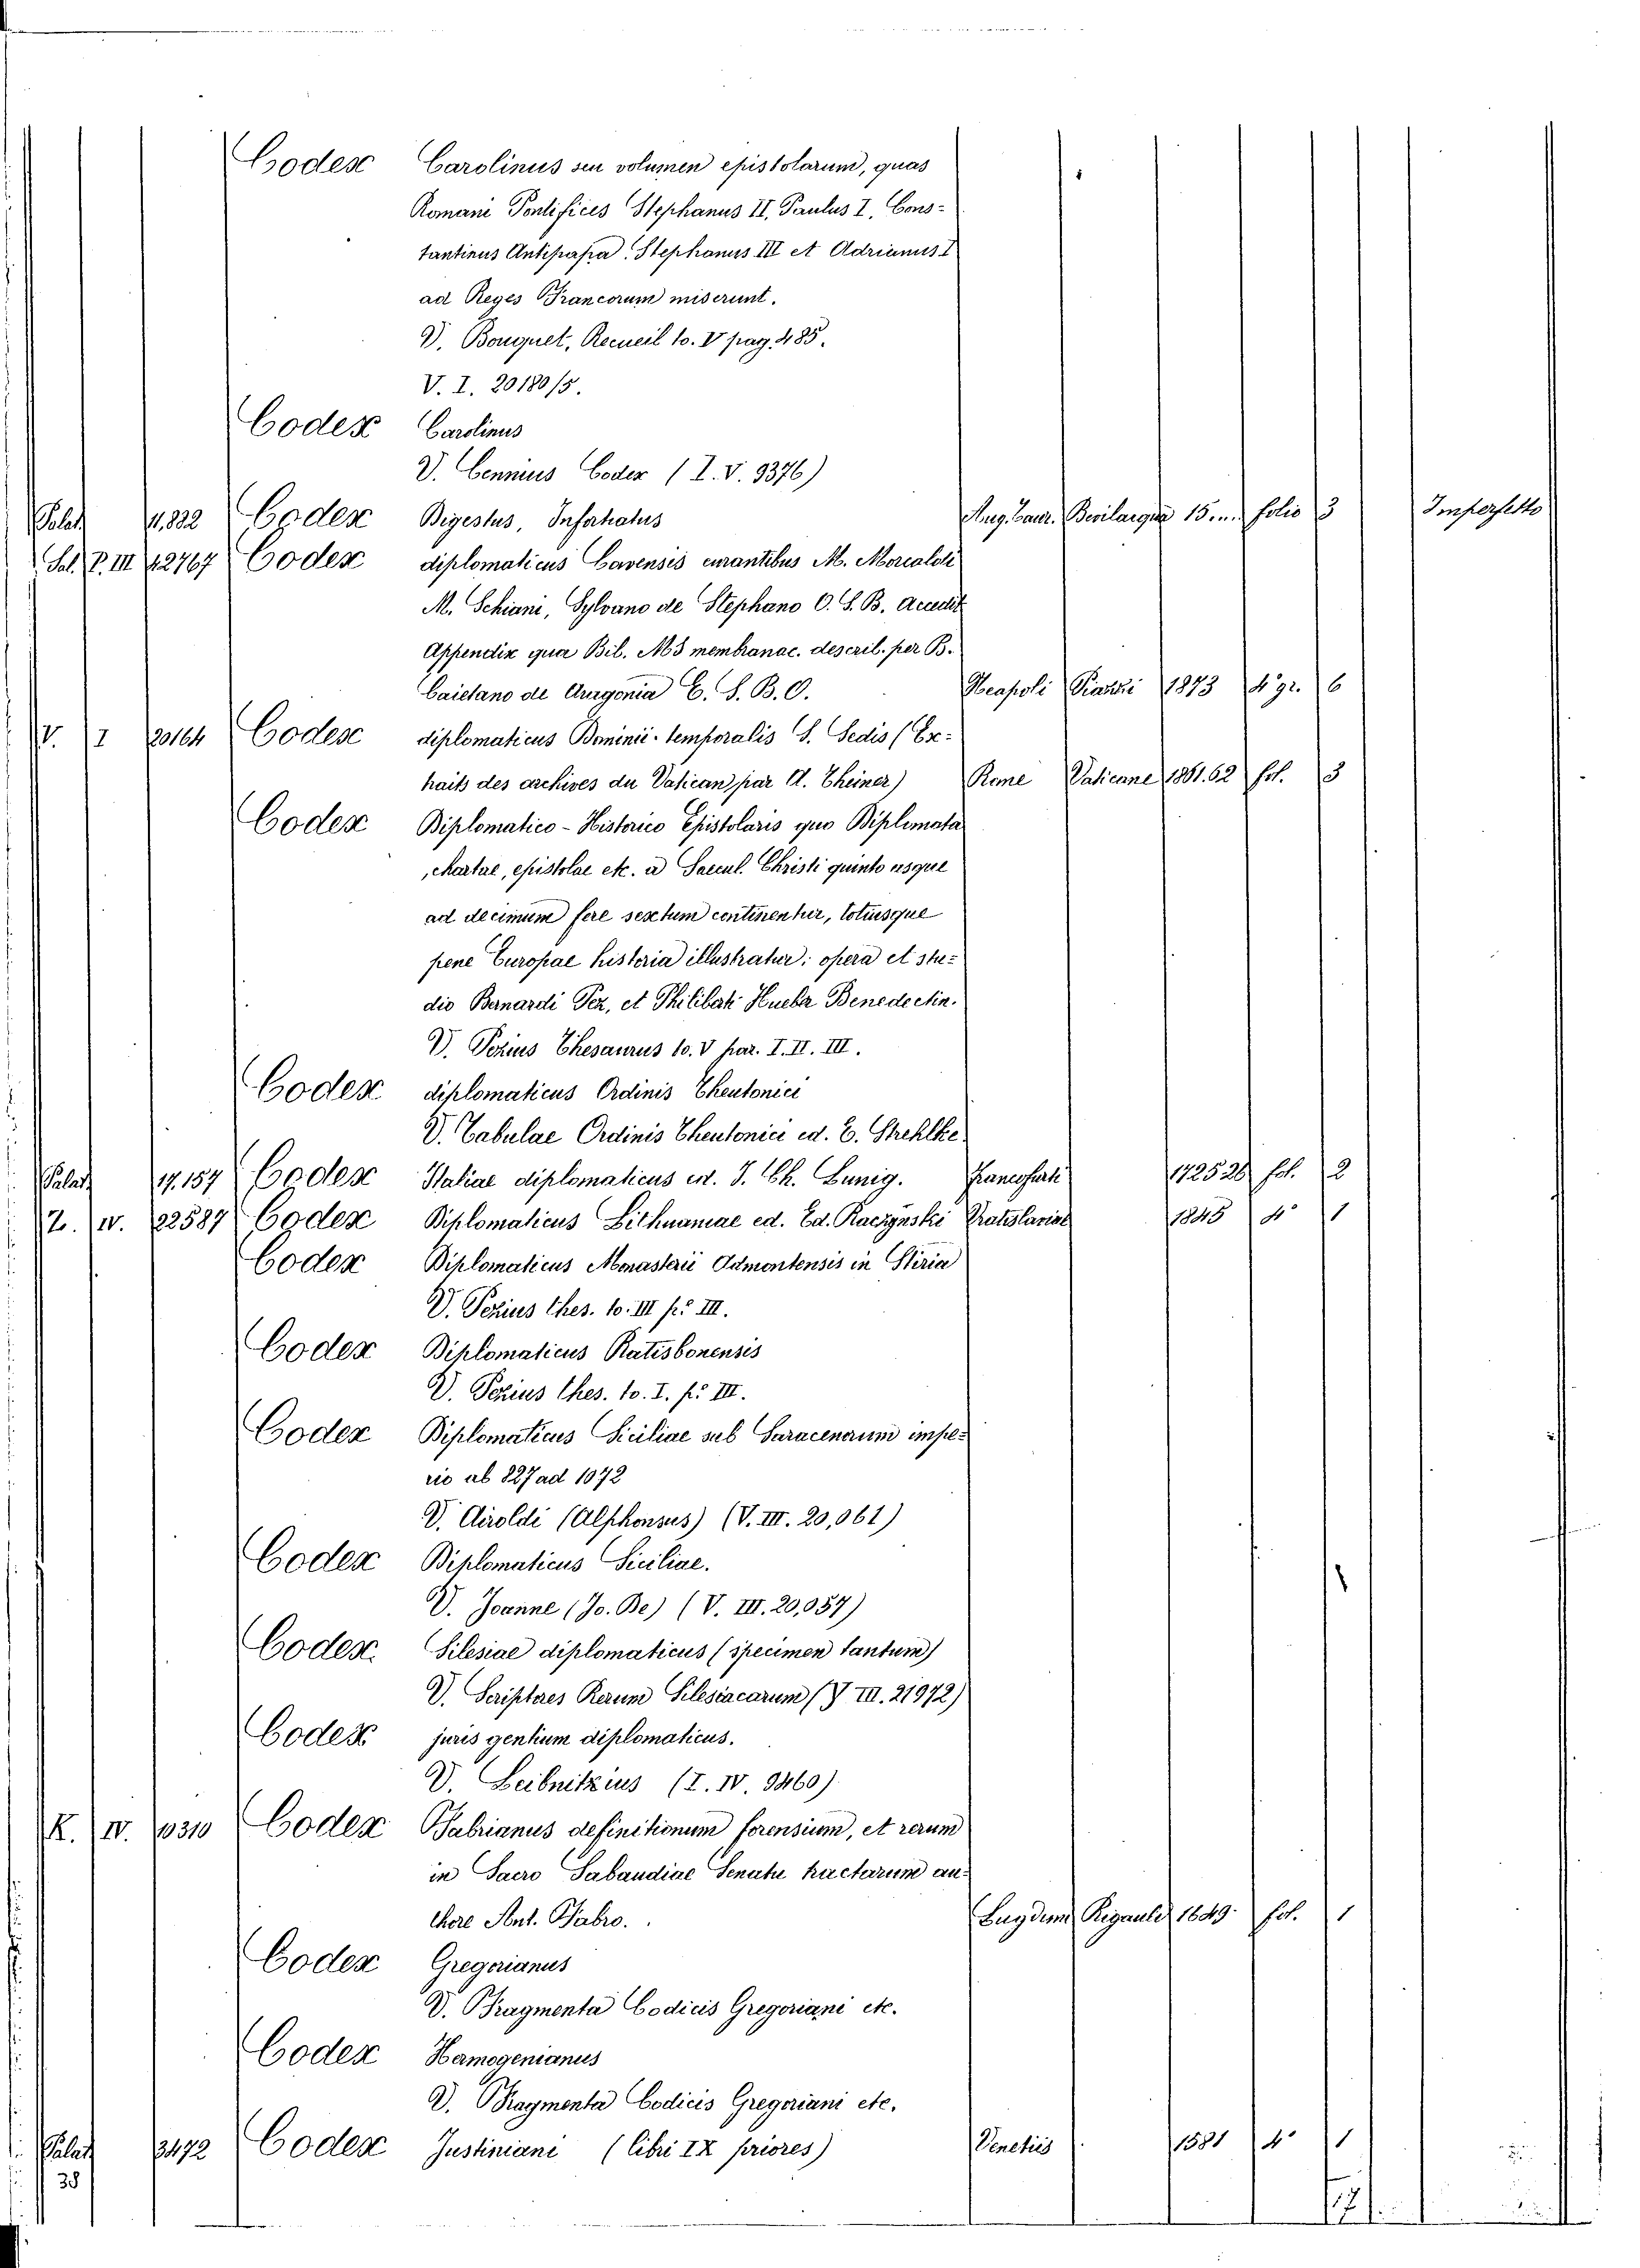 Codex Carolinus seu volumen epistolarum, quas
Romani Pontifices Stephanus II, Paulus I, Cons-
tantinus Antipapa, Stephanus III et Adrianus I
ad Reges Francorum miserunt.
V. Bouquet, Recueil to. V pag. 485.
V. I. 20180/5.
Codex Carolinus
V. Cennius Codex (I. V. 9376)
Palat 11,832 Codex Digestus, Infortiatus Aug. Taur. Bevilacqua 15... folio 3 Imperfetto
Sal. P. III 42767 Codex diplomaticus Cavensis curantibus M. Morcaldi
M. Schiani, Sylvano de Stephano O. S. B. Accedit
Appendix qua Bib. MS membranac. describ. per B.
Caietano de Aragonia C. S. B. O. Neapoli Piazzi 1873 4° gr. 6
V. I 20164 Codex diplomaticus Dominii temporalis S. Sedis (Ex-
traits des archives du Vatican par A. Theiner) Rome Vaticane 1861.62 fol. 3
Codex Diplomatico-Historico Epistolaris quo Diplomata
, chartae, epistolae etc. a Saecul. Christi quinto usque
ad decimum fere sextum continentur, totiusque
pene Europae historia illustratur: opera et stu-
dio Bernardi Pez, et Philiberti Hueber Benedectin.
V. Pezius Thesaurus to. V par. I. II. III.
Codex diplomaticus Ordinis Theutonici
V. Tabulae Ordinis Theutonici ed. E. Strehlke
Palat 17.157 Codex Italiae diplomaticus ed. J. Ch. Lunig. Francofurti 172526 fol. 2
Z. IV. 22587 Codex Diplomaticus Lithuaniae ed. Ed. Raczynski Vratislaviae 1845 4° 1
Codex Diplomaticus Monasterii Admontensis in Stiria
V. Pezius thes. to. III ps III.
Codex Diplomaticus Ratisbonensis
V. Pezius thes. to. I. ps III.
Codex Diplomaticus Siciliae sub Saracenorum impe-
rio ab 827 ad 1072
V. Airoldi (Alphonsus) (V. III. 20,061)
Codex Diplomaticus Siciliae.
V. Joanne (Jo. De) (V. III. 20,057)
Codex. Silesiae diplomaticus (specimen tantum)
V. Scriptores Rerum Silesiacarum (V III. 21972)
Codex juris gentium diplomaticus.
V. Leibnitzius (I. IV. 9460)
K. IV. 10310 Codex Fabrianus definitionum forensium, et rerum
in Sacro Sabaudiae Senatu tractarum au-
thore Ant. Fabro. Lugdun Rigauld 1649 fol. 1
Codex Gregorianus
V. Fragmenta Codicis Gregoriani etc.
Codex Hermogenianus
V. Fragmenta Codicis Gregoriani etc.
Palat 3472 Codex Justiniani (libri IX priores) Venetiis 1581 4° 1
38
17